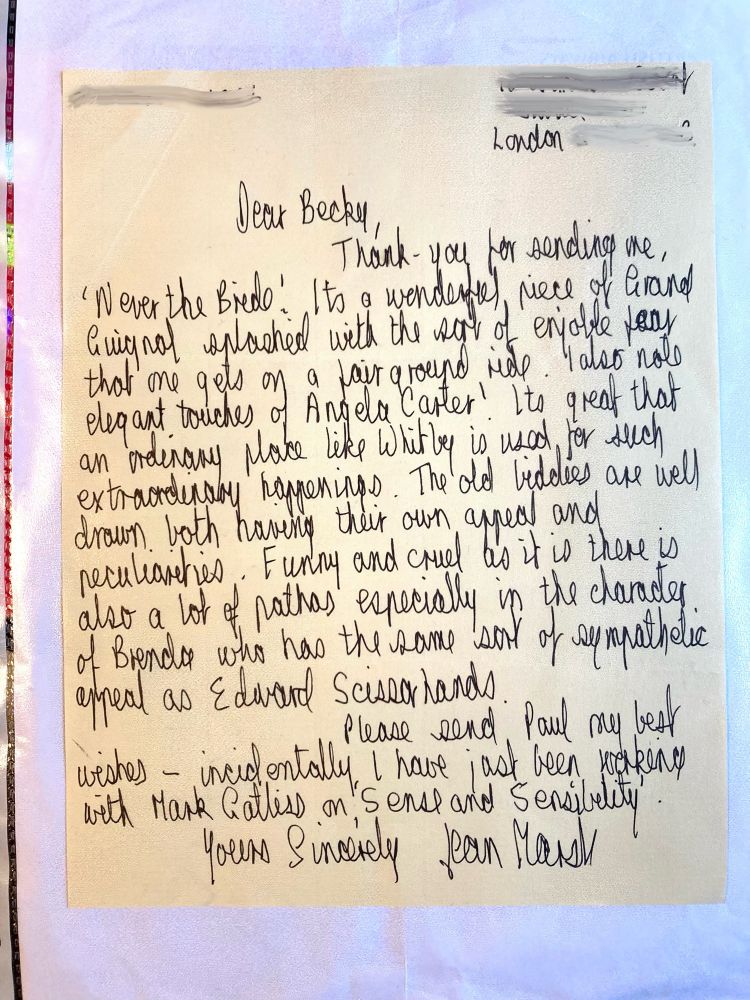 London
Dear Becky,
Thank-you for sending me,
'Never the Bride'. Its a wonderful piece of Grand
Guignol splashed with the sort of enjoble fear
that one gets on a fairground ride. I also note
elegant touches of Angela Carter'. Its great that
an ordinary place like Whitby is used for such
extraordinary happenings. The old biddies are well
drawn both having their own appeal and
peculiareties. Funny and cruel as it is there is
also a lot of pathos especially in the character
of Brenda who has the same sort of sympathetic
appeal as Edward Scissorhands.
Please send Paul my best
wishes – incidentally, I have just been working
with Mark Gatliss on 'Sense and Sensibility'.
Yours Sincerely Jean Marsh